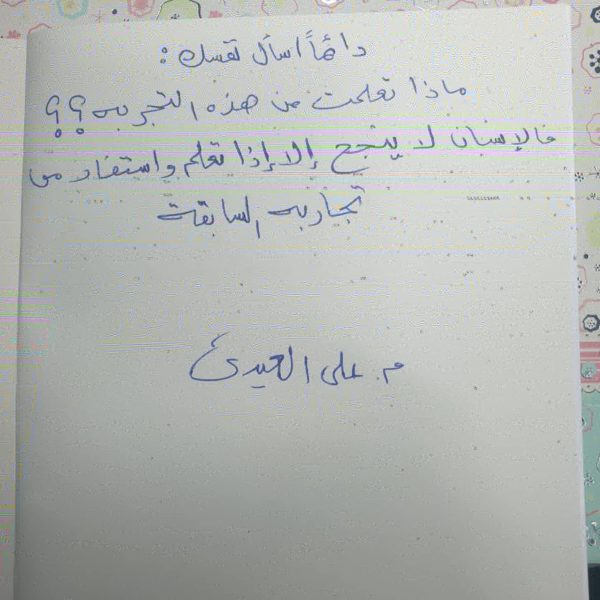 دائماً اسأل نفسك :
ماذا تعلمت من هذه التجربه ؟؟
فالإنسان لا ينجح إلا إذا تعلم واستفاد من
تجاربه السابقة
م. على العيدى